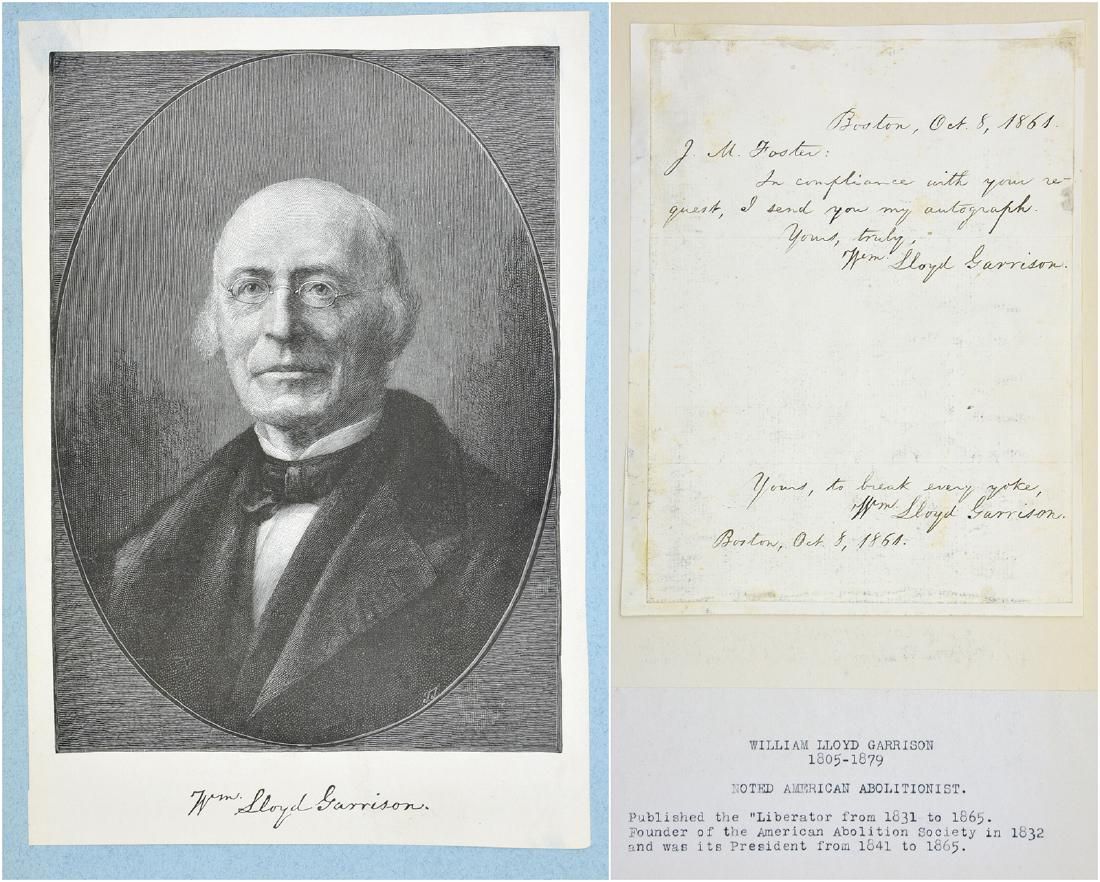 Wm. Lloyd Garrison.
Boston, Oct. 8, 1861.
J. M. Foster:
In compliance with your re-
quest, I send you my autograph.
Yours, truly,
Wm. Lloyd Garrison.
Yours, to break every yoke,
Wm. Lloyd Garrison.
Boston, Oct. 8, 1861.
WILLIAM LLOYD GARRISON
1805-1879
NOTED AMERICAN ABOLITIONIST.
Published the "Liberator from 1831 to 1865.
Founder of the American Abolition Society in 1832
and was its President from 1841 to 1865.